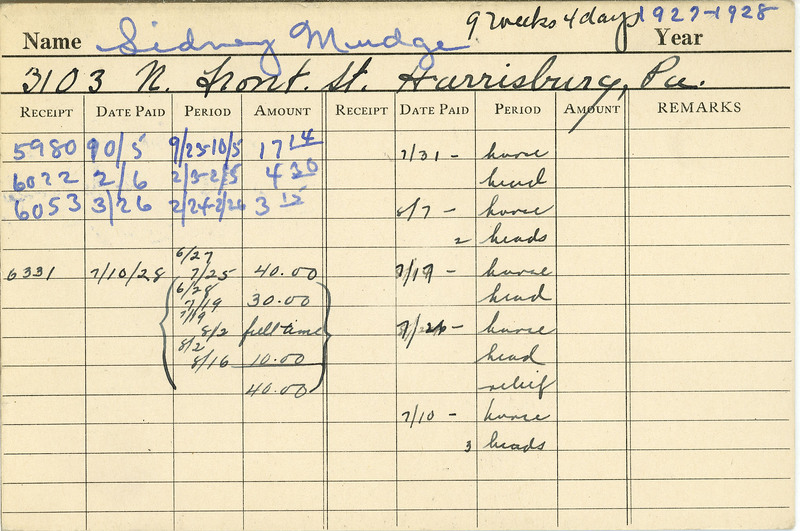 9 weeks 4 days 1927-1928
Name Sidney Mudge Year
3103 N. Front. St. Harrisburg, Pa.
RECEIPT DATE PAID PERIOD AMOUNT RECEIPT DATE PAID PERIOD AMOUNT REMARKS
5980 90/5 9/23-10/5 17 14 7/31 - horse
6022 2/6 2/3-2/5 4 30 head
6053 3/26 2/24-2/26 3 15 8/7 - horse
2 heads
6/27
6331 7/10/28 7/25 40.00 7/17 - horse
6/28
7/19 30.00 head
7/19
8/2 full time 7/26 - horse
8/2
8/16 10.00 head
40.00 relief
7/10 - horse
3 heads